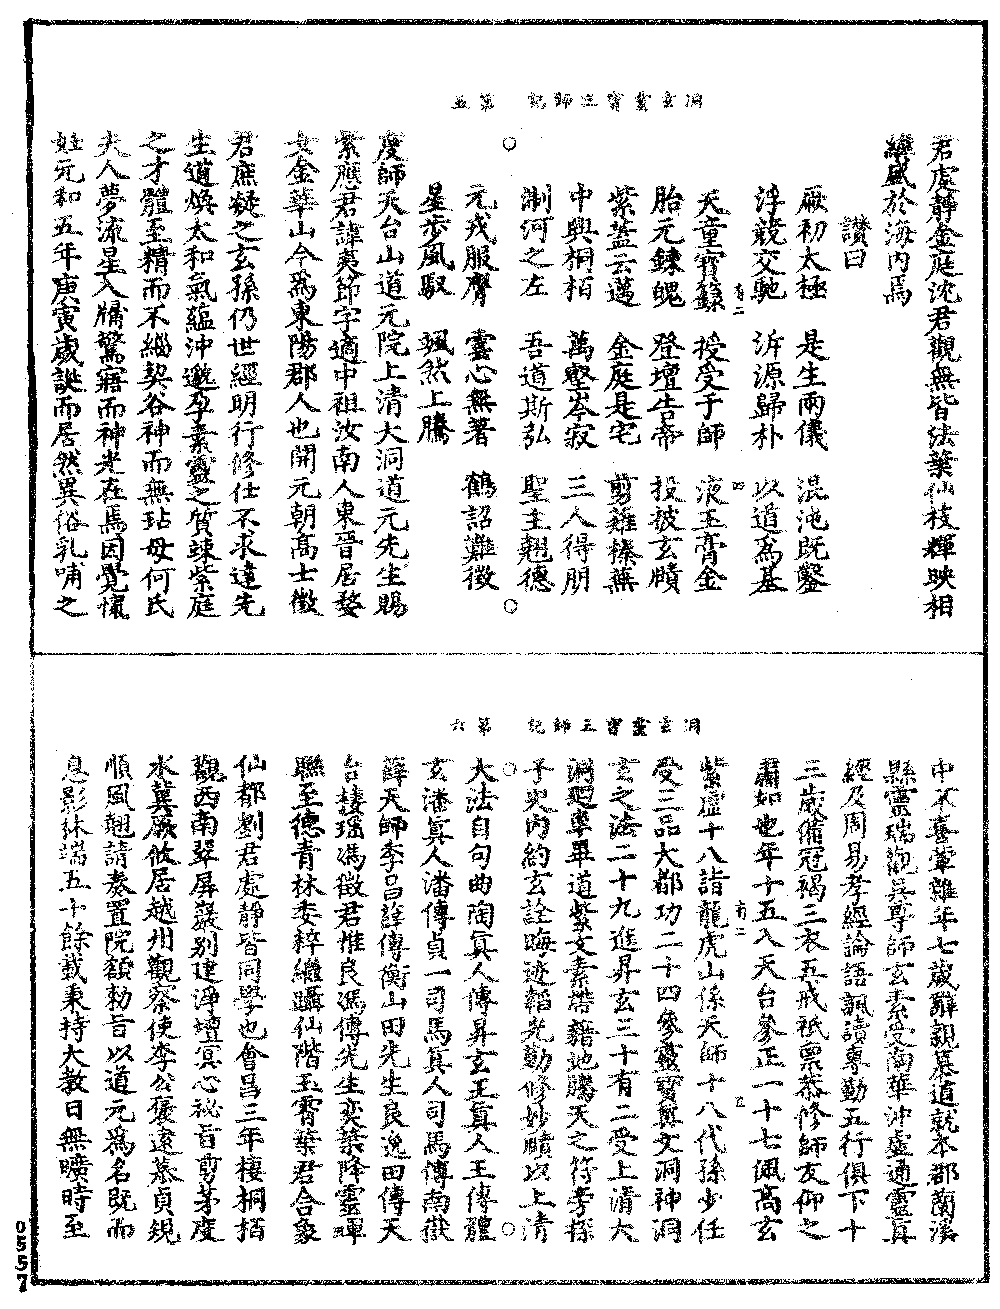 洞玄靈寶三師記　第五
君處靜金庭沈君觀無皆法葉仙枝輝映相
繼盛於海內焉
讃曰
厥初太極　是生兩儀　混沌既鑿
浮競交馳　泝源歸朴　以道為基
天童寶籙　授受于師　液玉膏金
胎元鍊魄　登壇告帝　投披玄牘
紫蓋云邁　金庭是宅　剪薙榛蕪
中興桐栢　萬壑岑寂　三人得朋
淛河之左　吾道斯弘　聖主翹德
元戎服膺　雲心無著　鶴詔難徵
星步風馭　颯然上騰
度師天台山道元院上清大洞道元先生賜
紫應君諱夷節字適中祖汝南人東晉居婺
女金華山今為東陽郡人也開元朝高士徵
君庶凝之玄孫仍世經明行修仕不求達先
生道煥太和氣蘊沖邈孕素靈之質竦紫庭
之才體至精而不緇契谷神而無玷母何氏
夫人夢流星入牖驚寤而神光在焉因覺懷
妊元和五年庚寅歲誕而居然異俗乳哺之
洞玄靈寶三師記　第六
中不喜葷雜年七歲辭親慕道就本郡蘭溪
縣靈瑞觀吳尊師玄素受南華沖虛通靈真
經及周易孝經論語諷讀專勤五行俱下十
三歲備冠褐三衣五戒祇稟恭修師友仰之
肅如也年十五入天台參正一十七佩高玄
紫虛十八詣龍虎山係天師十八代孫少任
受三品大都功二十四參靈寶真文洞神洞
玄之法二十九進昇玄三十有二受上清大
洞迴車畢道紫文素帶藉地騰天之符旁探
子史內約玄詮晦迹韜光勤修妙賾以上清
大法自句曲陶真人傳昇玄王真人王傳體
玄潘真人潘傳貞一司馬真人司馬傳南嶽
薛天師季昌薛傳衡山田先生良逸田傳天
台棲瑤馮徵君惟良馮傳先生奕葉降靈暉
聯至德青林委粹繼躡仙階玉霄葉君合象
仙都劉君處靜皆同學也會昌三年棲桐栢
觀西南翠屏巖別建淨壇冥心祕旨剪茅度
水冀厥攸居越州觀察使李公褒遠慕貞規
順風翹請奏置院額勅旨以道元為名既而
息影林端五十餘載秉持大教日無曠時至
0557